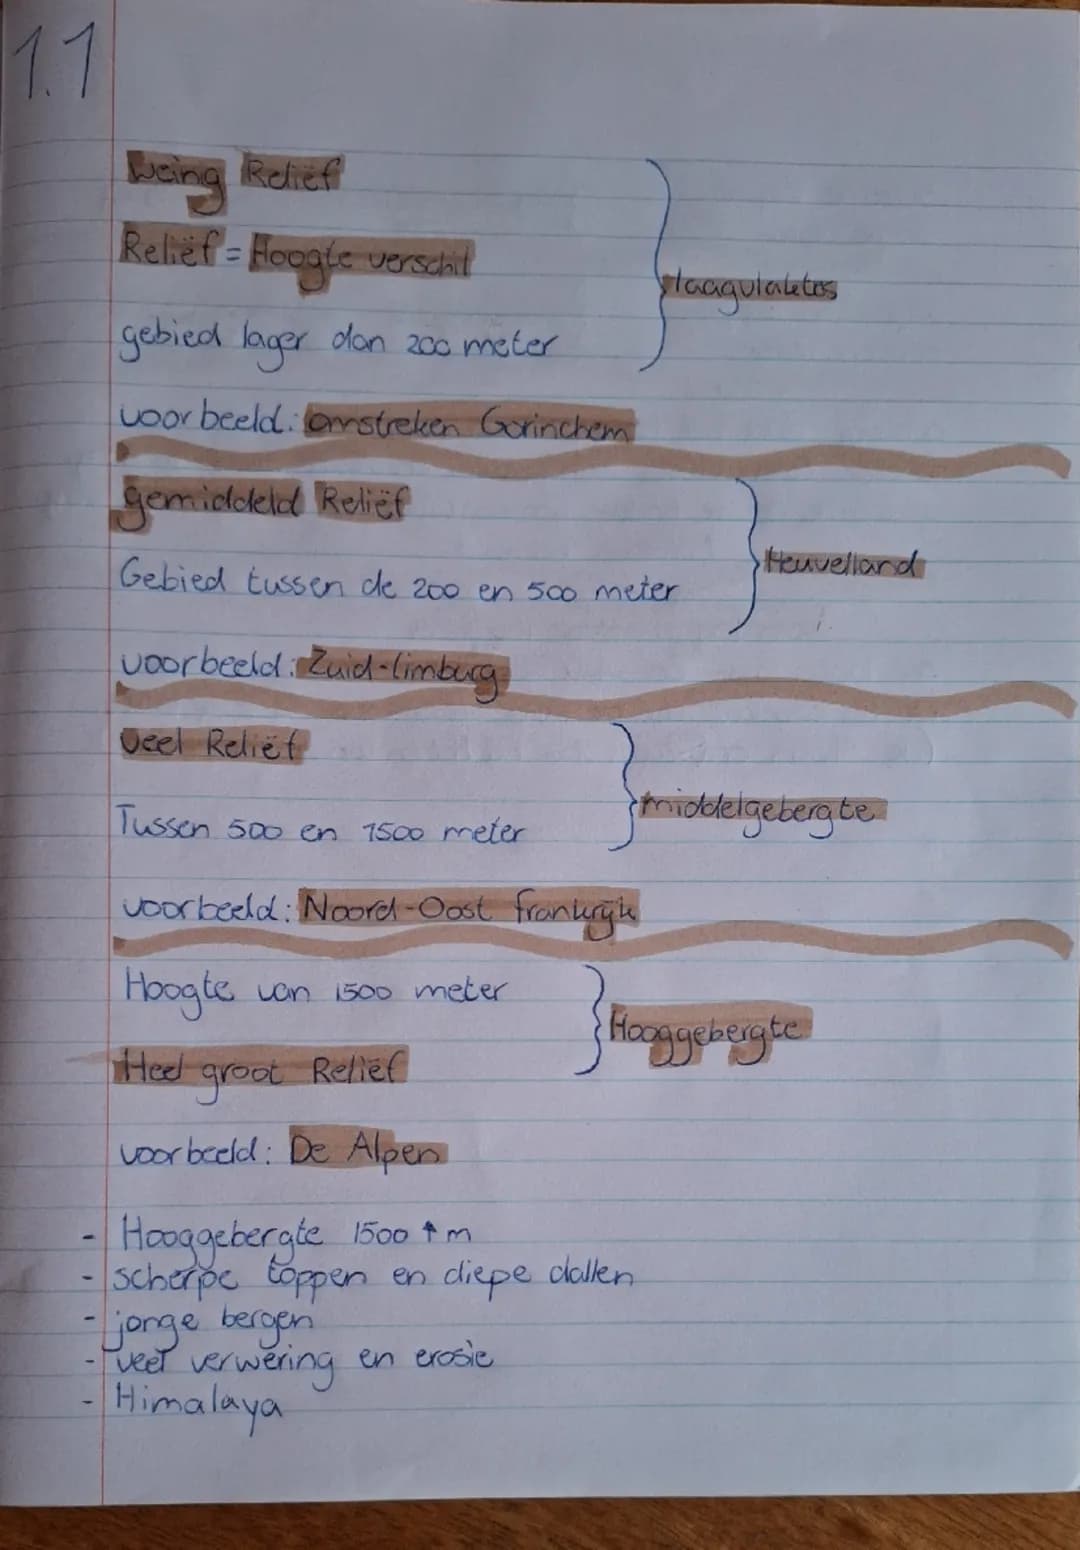 1.1
Weinig Reliëf
Reliëf = Hoogte verschil
laagvlaktes
gebied lager dan 200 meter
voorbeeld: omstreken Gorinchem
gemiddeld Reliëf
Heuvelland
Gebied tussen de 200 en 500 meter
voorbeeld: Zuid-limburg
Veel Reliëf
middelgebergte
Tussen 500 en 1500 meter
voorbeeld: Noord-Oost frankrijk
Hoogte van 1500 meter
Hooggebergte
Heel groot Reliëf
voorbeeld: De Alpen
- Hooggebergte 1500 ↑ m
- scherpe toppen en diepe dallen
- jonge bergen
- veel verwering en erosie
- Himalaya